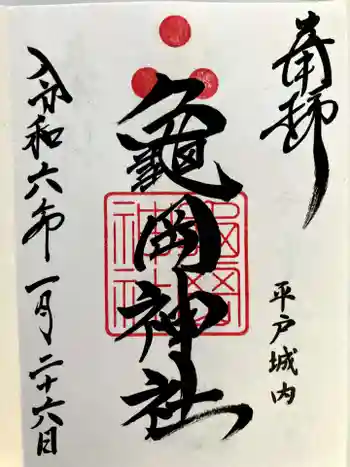 奉拝
平戸城内
亀岡神社
令和六年一月二十六日